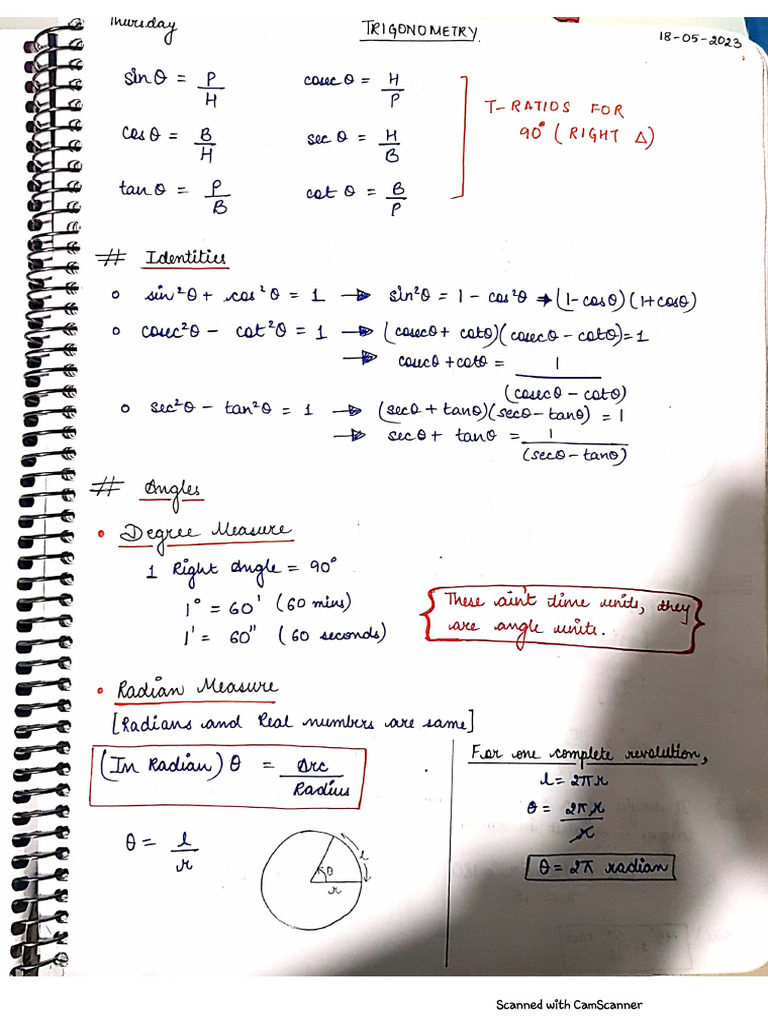 Thursday TRIGONOMETRY. 18-05-2023
sinθ = P/H cosecθ = H/P
cosθ = B/H secθ = H/B
tanθ = P/B cotθ = B/P
T-RATIOS FOR
90° (RIGHT Δ)
# Identities
o sin²θ + cos²θ = 1 → sin²θ = 1 - cos²θ → (1-cosθ)(1+cosθ)
o cosec²θ - cot²θ = 1 → (cosecθ + cotθ)(cosecθ - cotθ)=1
→ cosecθ + cotθ = 1/(cosecθ - cotθ)
o sec²θ - tan²θ = 1 → (secθ + tanθ)(secθ - tanθ) = 1
→ secθ + tanθ = 1/(secθ - tanθ)
# Angles
• Degree Measure
1 Right angle = 90°
1° = 60' (60 mins)
1' = 60" (60 seconds)
These ain't time units, they
are angle units.
• Radian Measure
[Radians and Real numbers are same]
(In Radian) θ = Arc/Radius
θ = l/r
θ
l
r
For one complete revolution,
l = 2πr
θ = 2πr/r
θ = 2π radian
Scanned with CamScanner